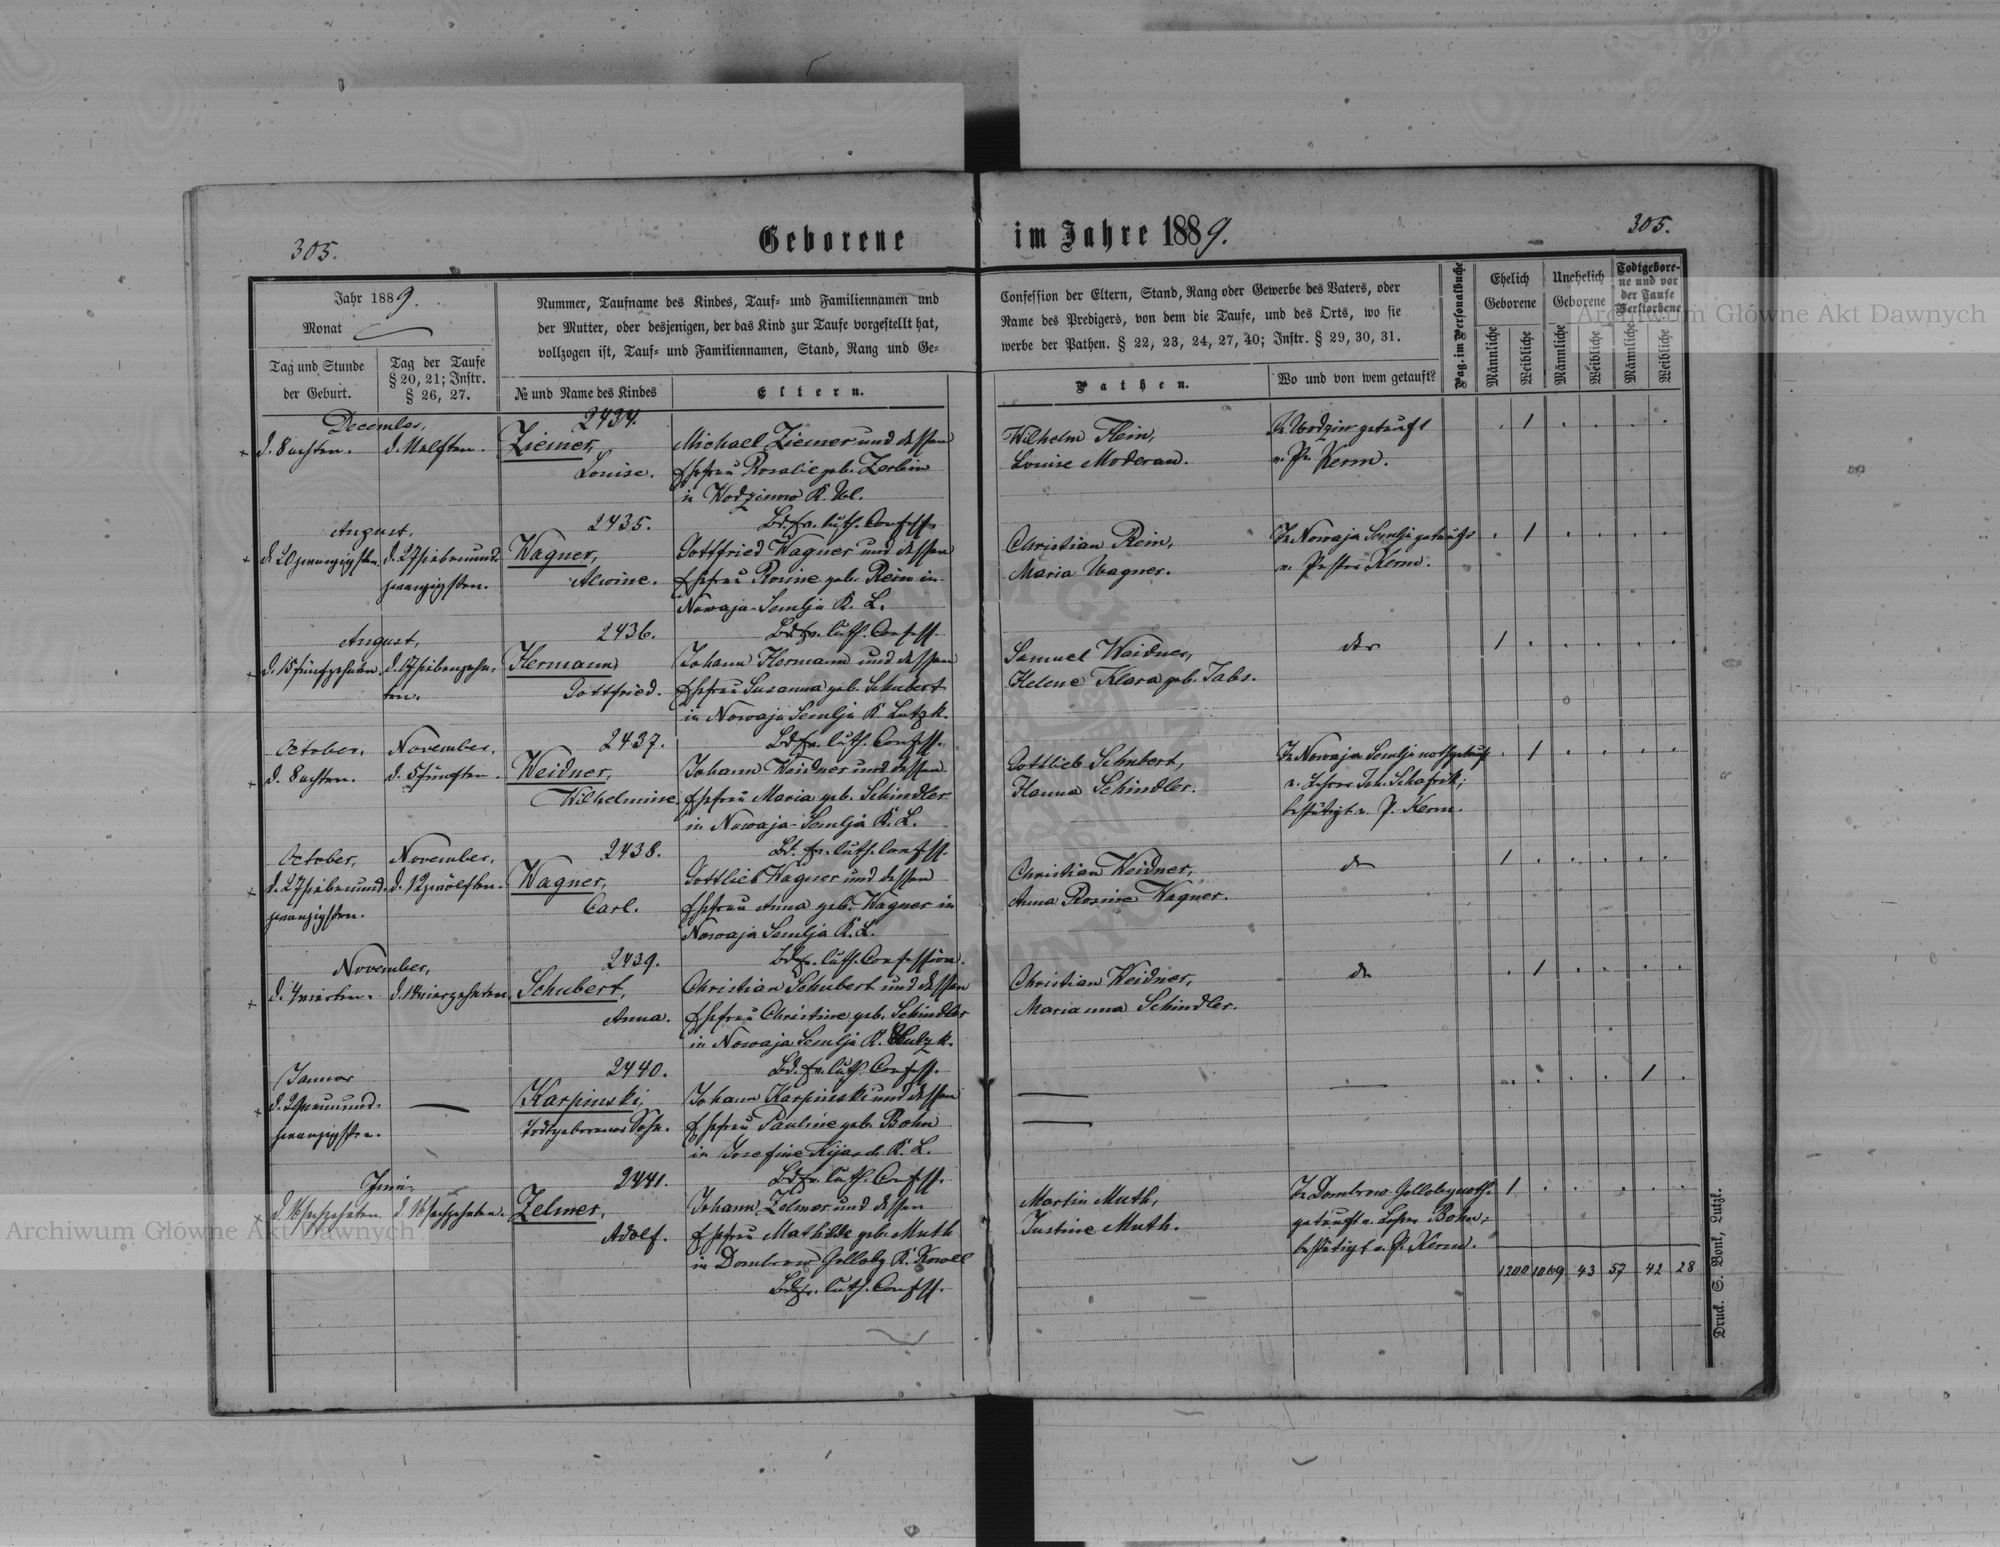 305.
Geborene
im Jahre 1889.
305.
Jahr 1889.
Monat
Tag und Stunde
der Geburt.
Tag der Taufe
§ 20, 21; Instr.
§ 26, 27.
Nummer, Taufname des Kindes, Tauf- und Familiennamen und
der Mutter, oder desjenigen, der das Kind zur Taufe vorgestellt hat,
vollzogen ist, Tauf- und Familiennamen, Stand, Rang und Ge-
№ und Name des Kindes
Eltern.
Confession der Eltern, Stand, Rang oder Gewerbe des Vaters, oder
Name des Predigers, von dem die Taufe, und des Orts, wo sie
werbe der Pathen. § 22, 23, 24, 27, 40; Instr. § 29, 30, 31.
Pathen.
Wo und von wem getauft?
Pag. im Personalbuche
Ehelich
Geborene
Unehelich
Geborene
Todtgebore-
ne und vor
der Taufe
Verstorbene
Männliche
Weibliche
Männliche
Weibliche
Männliche
Weibliche
December,
d. 8 achten.
d. 11 elften.
2434.
Ziemer,
Louise.
Michael Ziemer und dessen
Ehefrau Rosalie geb. Zerbin
in
Bd. ev. luth. Confess.
Wilhelm Klein,
Louise Moderau.
getauft
v. P. Kerm.
1
August,
d. 20 zwanzigsten
d. 27 siebenund-
zwanzigsten.
2435.
Wagner,
Alwine.
Gottfried Wagner und dessen
Ehefrau Rosine geb. Rein in
Nowaja-Semlja K. L.
Bd. ev. luth. Confess.
Christian Rein,
Maria Wagner.
In Nowaja Semlja getauft
v. Pastor Kerm.
1
August,
d. 15 fünfzehnten
d. 17 siebenzehn-
ten.
2436.
Hermann
Gottfried.
Johann Hermann und dessen
Ehefrau Susanna geb. Schubert
in Nowaja Semlja K. Lutzk.
Bd. ev. luth. Confess.
Samuel Weidner,
Helene Klara geb. Jabs.
1
October,
d. 8 achten.
November,
d. 5 fünften.
2437.
Weidner,
Wilhelmine.
Johann Weidner und dessen
Ehefrau Maria geb. Schindler
in Nowaja-Semlja K. L.
Bd. ev. luth. Confess.
Gottlieb Schubert,
Hanna Schindler.
In Nowaja Semlja nothgetauft
v. Lehrer Schafrik;
bestätigt v. P. Kerm.
1
October,
d. 27 siebenund-
zwanzigsten.
November,
d. 12 zwölften.
2438.
Wagner,
Carl.
Gottlieb Wagner und dessen
Ehefrau Anna geb. Wagner in
Nowaja Semlja K. L.
Bd. ev. luth. Confession.
Christian Weidner,
Anna Rosine Wagner.
1
November,
d. 4 vierten.
d. 14 vierzehnten.
2439.
Schubert,
Anna.
Christian Schubert und dessen
Ehefrau Christine geb. Schindler
in Nowaja Semlja K. Lutzk.
Bd. ev. luth. Confess.
Christian Weidner,
Marianna Schindler.
1
Januar
d. 29 neunund-
zwanzigsten.
2440.
Karpinski,
todtgeborener Sohn.
Johann Karpinski und dessen
Ehefrau Pauline geb. Bohn
in Josefine K. L.
Bd. ev. luth. Confess.
1
Juni,
d. 16 sechzehnten.
d. 16 sechzehnten.
2441.
Zelmer,
Adolf.
Johann Zelmer und dessen
Ehefrau Mathilde geb. Muth
in Dombrow K. Kowel
Bd. ev. luth. Confess.
Martin Muth,
Justine Muth.
In Dombrow noth-
getauft v. Lehrer Bohn,
bestätigt v. P. Kerm.
1
1200 1069 43 57 42 28
Druck. S. Bonk, Lutzk.
Archiwum Główne Akt Dawnych
Archiwum Główne Akt Dawnych